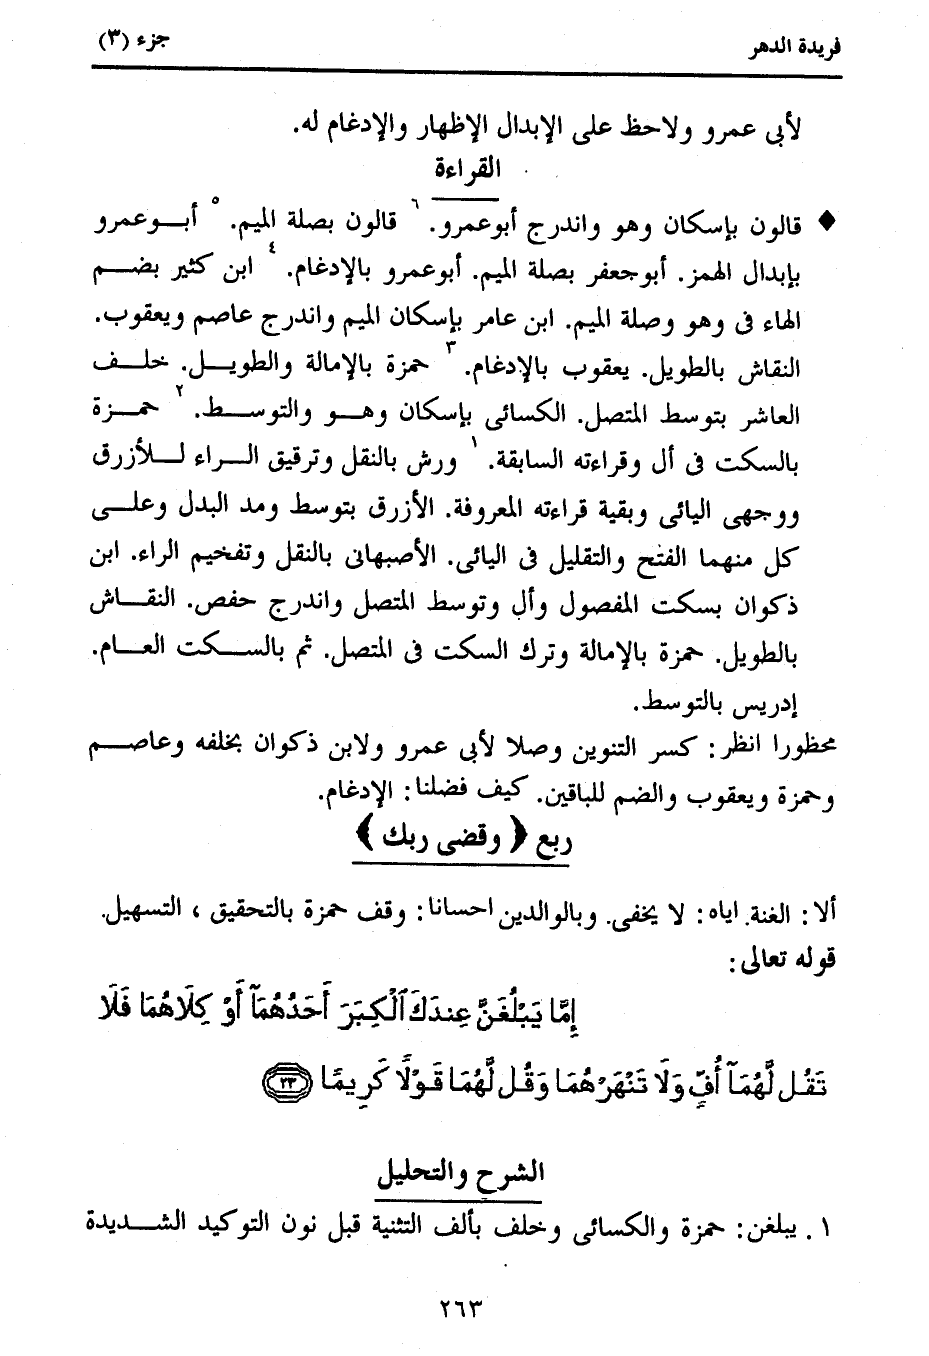 فريدة الدهر
جزء (٣)
لأبى عمرو ولاحظ على الإبدال الإظهار والإدغام له.
القراءة
♦ قالون بإسكان وهو واندرج أبوعمرو. ٦ قالون بصلة الميم. ٥ أبـوعمرو
بإبدال الهمز. أبوجعفر بصلة الميم. أبوعمرو بالإدغام. ٤ ابن كثير بضـم
الهاء فى وهو وصلة الميم. ابن عامر بإسكان الميم واندرج عاصم ويعقوب.
النقاش بالطويل. يعقوب بالإدغام. ٣ حمزة بالإمالة والطويـل. خلـف
العاشر بتوسط المتصل. الكسائى بإسكان وهـو والتوسـط. ٢ حمـزة
بالسكت فى أل وقراءته السابقة. ١ ورش بالنقل وترقيق الـراء لـلأزرق
ووجهى اليائى وبقية قراءته المعروفة. الأزرق بتوسط ومد البدل وعلـى
كل منهما الفتح والتقليل فى اليائى. الأصبهانى بالنقل وتفخيم الراء. ابن
ذكوان بسكت المفصول وأل وتوسط المتصل واندرج حفص. النقـاش
بالطويل. حمزة بالإمالة وترك السكت فى المتصل. ثم بالسـكت العـام.
إدريس بالتوسط.
محظورا انظر: كسر التنوين وصلا لأبى عمرو ولابن ذكوان بخلفه وعاصـم
وحمزة ويعقوب والضم للباقين. كيف فضلنا: الإدغام.
ربع ﴿ وقضى ربك ﴾
ألا: الغنة. اياه: لا يخفى. وبالوالدين احسانا: وقف حمزة بالتحقيق ، التسهيل.
قوله تعالى:
إِمَّا يَبْلُغَنَّ عِندَكَ ٱلْكِبَرَ أَحَدُهُمَآ أَوْ كِلَاهُمَا فَلَا
تَقُل لَّهُمَآ أُفٍّ وَلَا تَنْهَرْهُمَا وَقُل لَّهُمَا قَوْلًا كَرِيمًا ٢٣
الشرح والتحليل
١. يبلغن: حمزة والكسائى وخلف بألف التثنية قبل نون التوكيد الشـديدة
٢٦٣